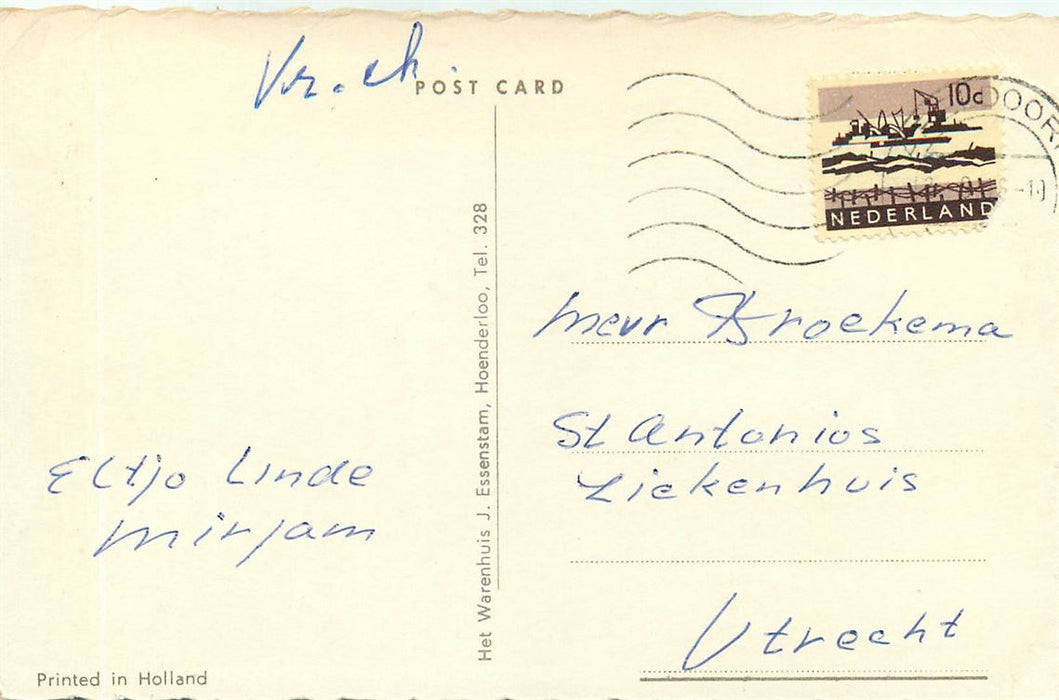 Vr. ch.
POST CARD
10c
NEDERLAND
Het Warenhuis J. Essenstam, Hoenderloo, Tel. 328
Mevr Broekema
St Antonios
Ziekenhuis
Utrecht
Eltjo Linde
Mirjam
Printed in Holland